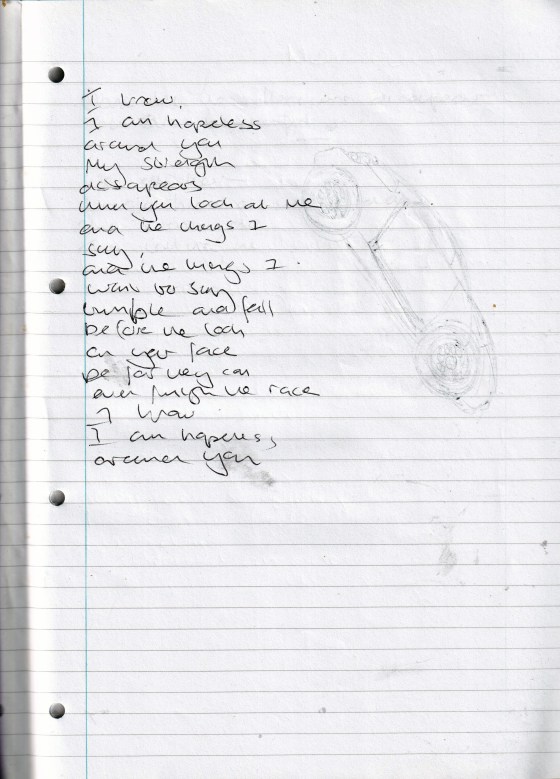 I know,
I am hopeless
around you
My strength
dissapears
when you look at me
and the things I
say,
and the things I
want to say
crumple and fall
before the look
on your face
before they can
ever finish the race
I know
I am hopeless,
around you